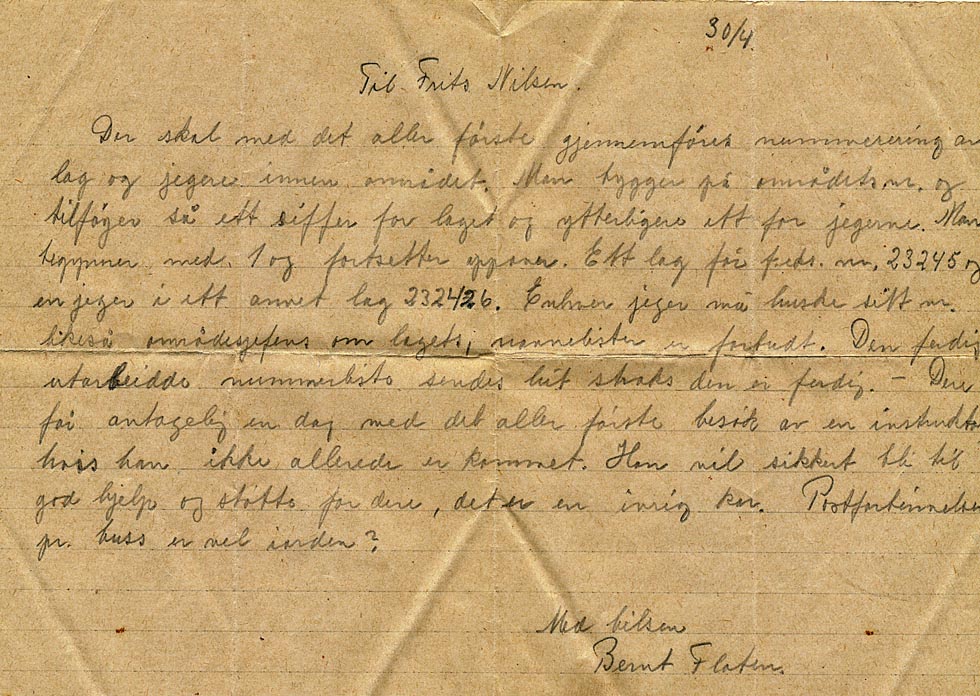 30/4.
Til Frits Nilsen.
Der skal med det aller første gjennemføres nummerering av
lag og jegere innen området. Man bygger på områdets nr. og
tilføyer så ett siffer for laget og ytterligere ett for jegerne. Man
begynner med 1 og fortsetter oppover. Ett lag får f.eks. nr. 23245 og
en jeger i ett annet lag 232426. Enhver jeger må huske sitt nr.
likeså områdesjefens om lagets, navnelister er forbudt. Den ferdig
utarbeidde nummerliste sendes hit straks den er ferdig. - Dere
får antagelig en dag med det aller første besøk av en instruktør
hvis han ikke allerede er kommet. Han vil sikkert bli til
god hjelp og støtte for dere, det er en ivrig kar. Postforbinnelse
pr. buss er vel iorden?
Med hilsen
Bernt Floten.